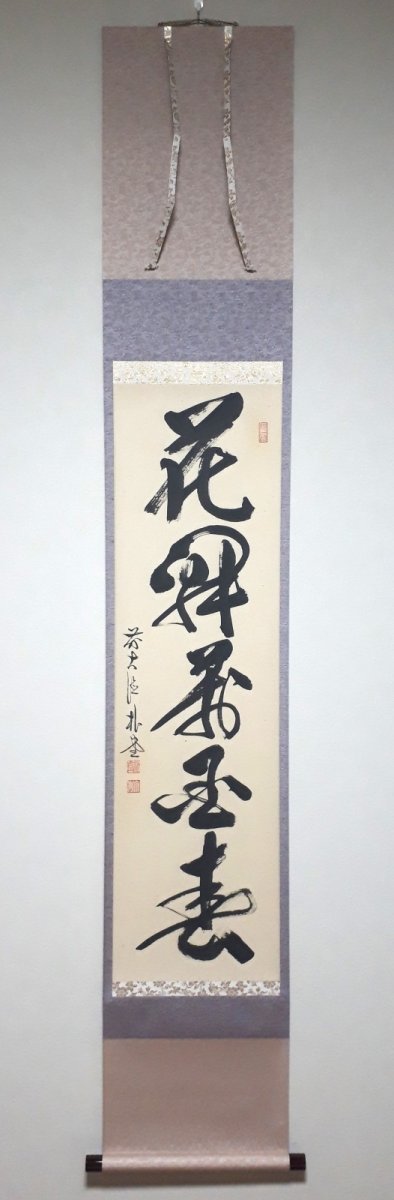 花開萬国春
前大徳